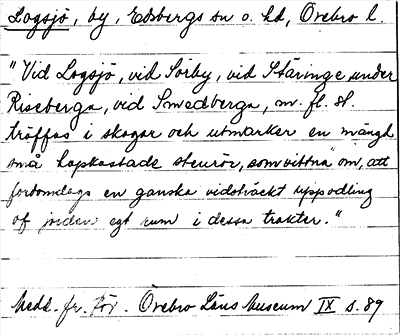 Logsjö, by, Edsbergs sn o. hd, Örebro l.
"Vid Logsjö, vid Sörby, vid Stäringe under
Riseberga, vid Smedberga, m. fl. st.
träffas i skogar och utmarker en mängd
små hopkastade stenrör, som vittna om, att
fordomdags en ganska vidsträckt uppodling
af jorden egt rum i dessa trakter."
Medd. fr. För. Örebro Läns Museum IX s. 89